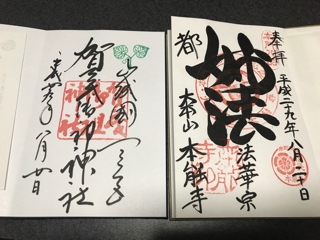 奉拝
平成二十九年八月二十日
妙法
法華宗
都
大本山
本能寺
山城國一之宮
賀茂御祖神社
八月廿日